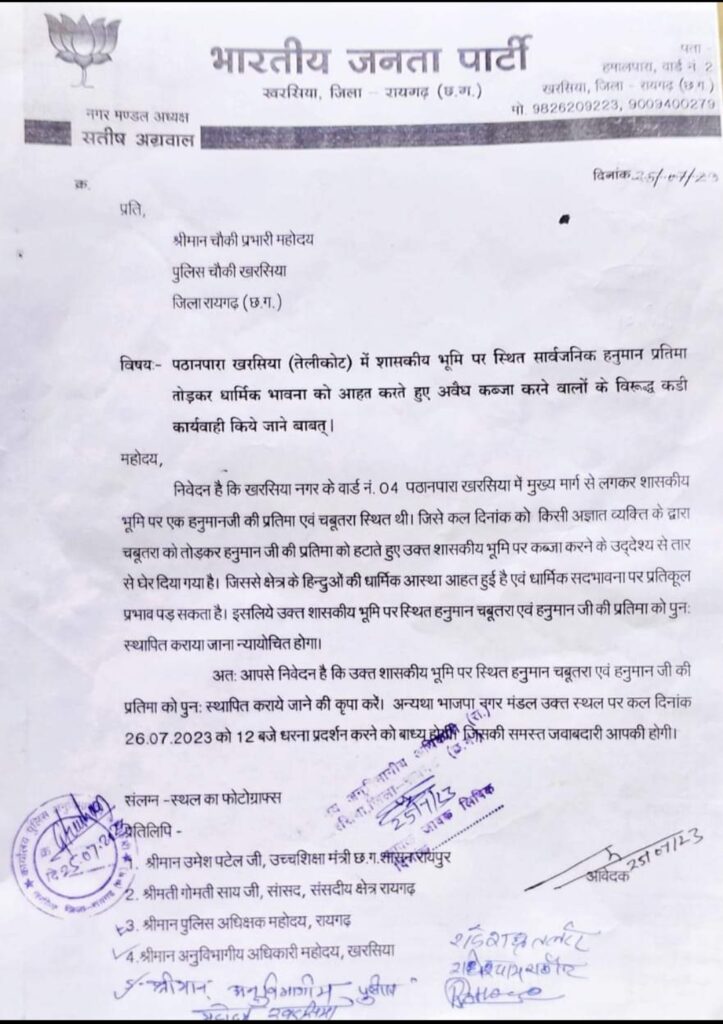 भारतीय जनता पार्टी
खरसिया, जिला - रायगढ़ (छ.ग.)
पता -
हमालपारा, वार्ड नं. 2
खरसिया, जिला - रायगढ़ (छ.ग.)
मो. 9826209223, 9009400279
नगर मण्डल अध्यक्ष
सतीष अग्रवाल
क्र.
दिनांक 25/07/23
प्रति,
श्रीमान चौकी प्रभारी महोदय
पुलिस चौकी खरसिया
जिला रायगढ़ (छ.ग.)
विषय:- पठानपारा खरसिया (तेलीकोट) में शासकीय भूमि पर स्थित सार्वजनिक हनुमान प्रतिमा
तोड़कर धार्मिक भावना को आहत करते हुए अवैध कब्जा करने वालों के विरूद्ध कडी
कार्यवाही किये जाने बाबत्।
महोदय,
निवेदन है कि खरसिया नगर के वार्ड नं. 04 पठानपारा खरसिया में मुख्य मार्ग से लगकर शासकीय
भूमि पर एक हनुमानजी की प्रतिमा एवं चबूतरा स्थित थी। जिसे कल दिनांक को किसी अज्ञात व्यक्ति के द्वारा
चबूतरा को तोड़कर हनुमान जी की प्रतिमा को हटाते हुए उक्त शासकीय भूमि पर कब्जा करने के उद्देश्य से तार
से घेर दिया गया है। जिससे क्षेत्र के हिन्दुओं की धार्मिक आस्था आहत हुई है एवं धार्मिक सदभावना पर प्रतिकूल
प्रभाव पड़ सकता है। इसलिये उक्त शासकीय भूमि पर स्थित हनुमान चबूतरा एवं हनुमान जी की प्रतिमा को पुन:
स्थापित कराया जाना न्यायोचित होगा।
अत: आपसे निवेदन है कि उक्त शासकीय भूमि पर स्थित हनुमान चबूतरा एवं हनुमान जी की
प्रतिमा को पुन: स्थापित कराये जाने की कृपा करें। अन्यथा भाजपा नगर मंडल उक्त स्थल पर कल दिनांक
26.07.2023 को 12 बजे धरना प्रदर्शन करने को बाध्य होगी जिसकी समस्त जवाबदारी आपकी होगी।
अनुविभागीय अधिकारी (रा.)
(छ.ग.)
25/7/23
आवक जावक लिपिक
संलग्न -स्थल का फोटोग्राफ्स
प्रतिलिपि -
कार्यालय पुलिस
दि. 25.07.2023
1. श्रीमान उमेश पटेल जी, उच्चशिक्षा मंत्री छ.ग.शासन रायपुर
आवेदक
25/07/23
2. श्रीमती गोमती साय जी, सांसद, संसदीय क्षेत्र रायगढ़
3. श्रीमान पुलिस अधिक्षक महोदय, रायगढ़
4.श्रीमान अनुविभागीय अधिकारी महोदय, खरसिया
5- श्रीमान अनुविभागीय पुलिस
महोदय खरसिया